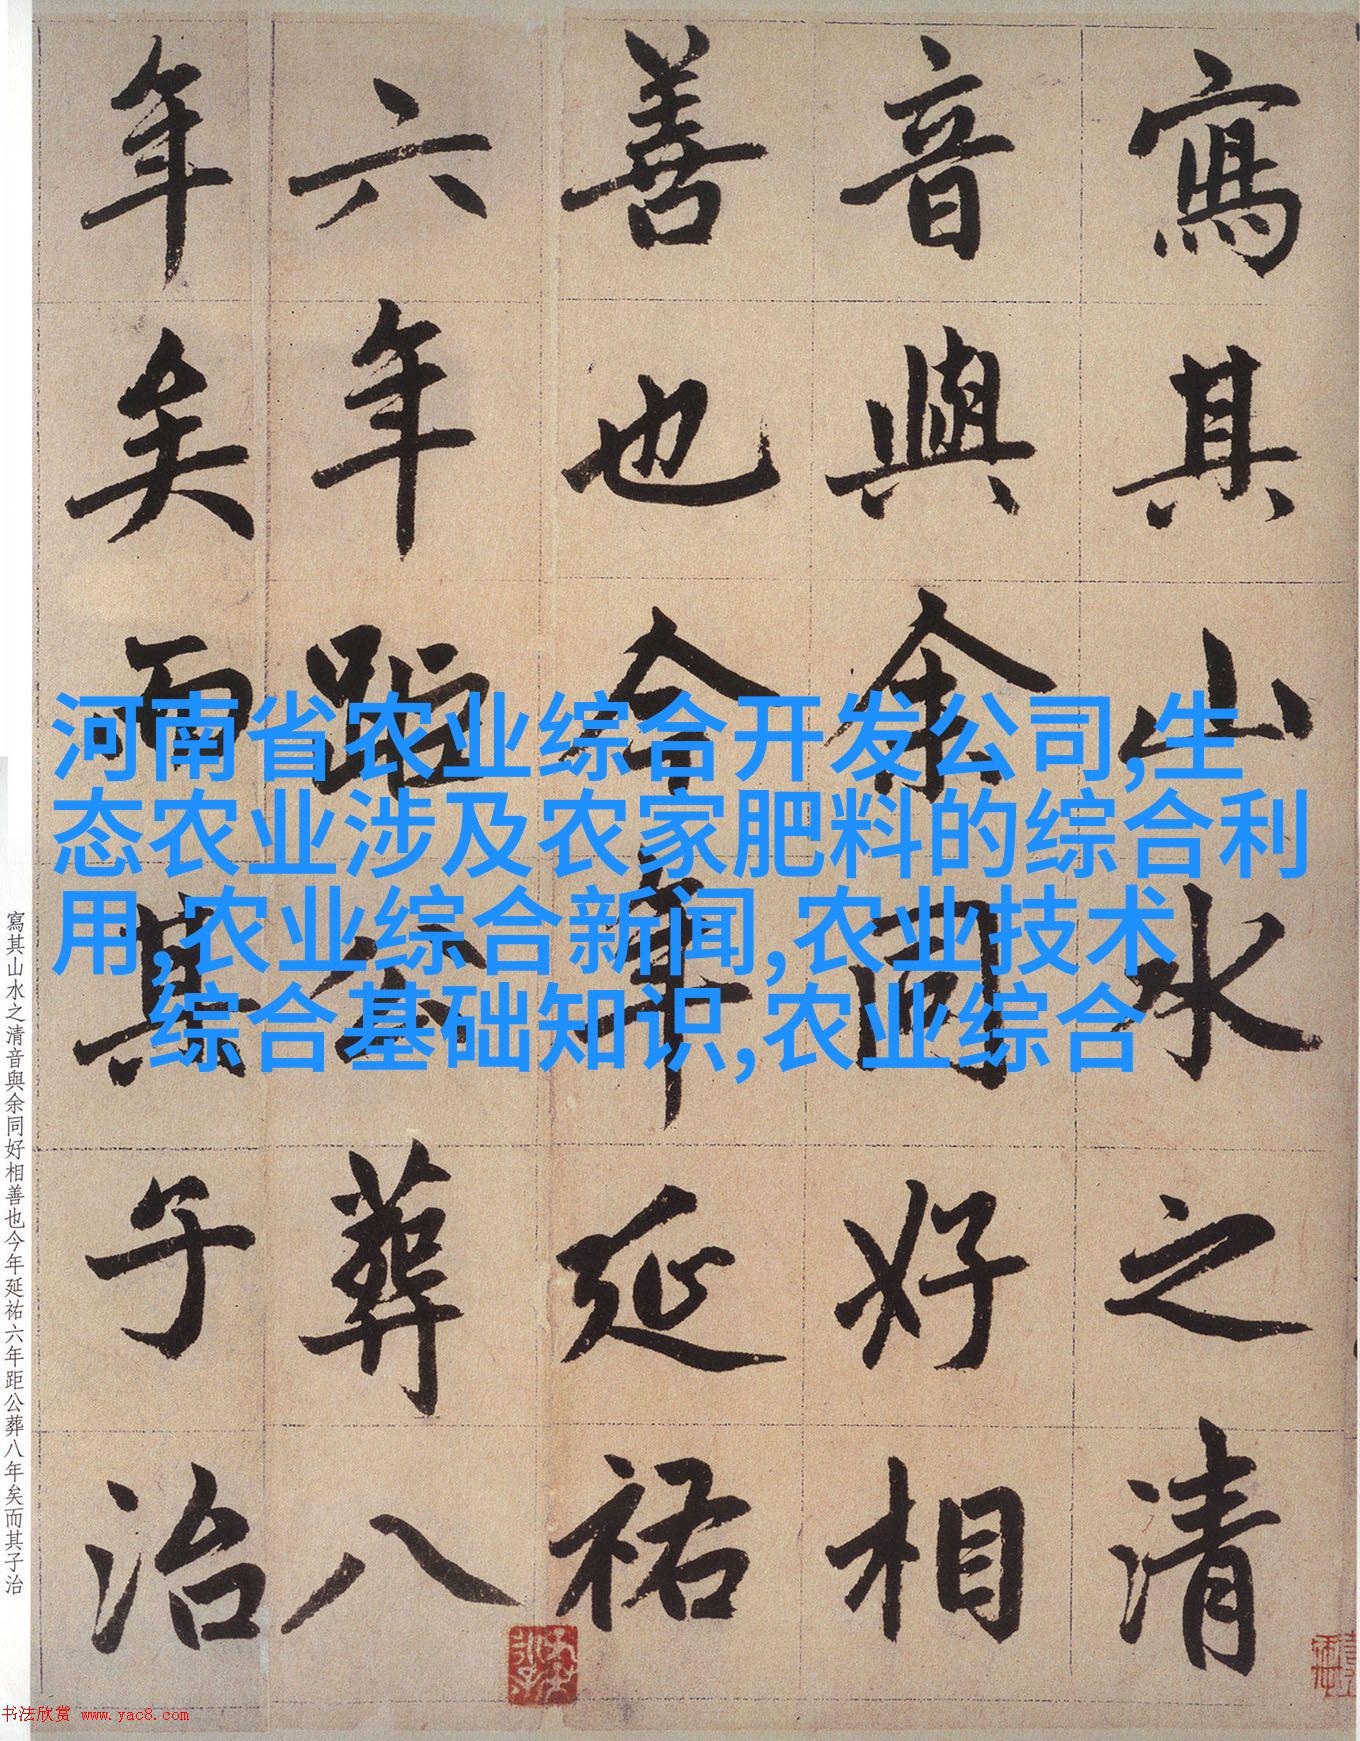 寫其山水之清
音與余同好相
善也今年延祐
六年距公葬八
年矣而其子治
河南省农业综合开发公司,生
态农业涉及农家肥料的综合利
用,农业综合新闻,农业技术
综合基础知识,农业综合
寫其山水之清音與余同好相善也今年延祐六年距公葬八年矣而其子治
书法欣赏 www.yac8.com